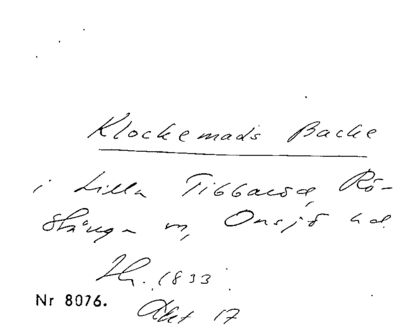 Klockemads Backe
i Lilla Tibbaröd, Rö-
stånga sn, Onsjö hd.
1833.
Nr 8076.
Akt 17